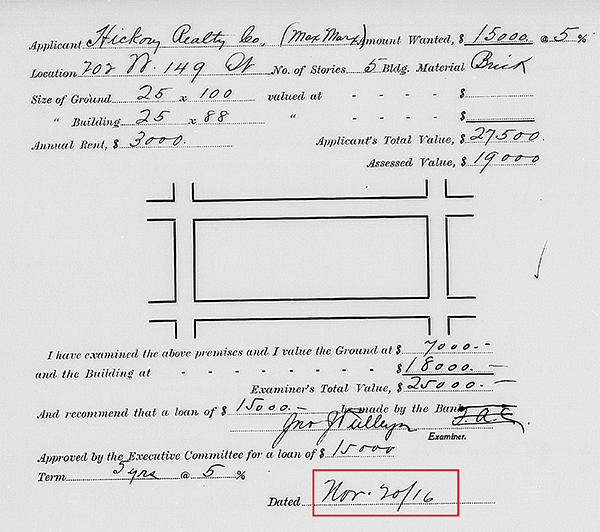 Applicant Hickory Realty Co. (Max Marx) Amount Wanted, $ 15000. @ 5 %
Location 702 W. 149 St No. of Stories 5 Bldg. Material Brick
Size of Ground 25 x 100 valued at - - - - $
" Building 25 x 88 " - - - - $
Annual Rent, $ 3000. Applicant's Total Value, $ 27500.
Assessed Value, $ 19000
I have examined the above premises and I value the Ground at $ 7000.-
and the Building at - - - - - - - - $ 18000.-
Examiner's Total Value, $ 25000.-
And recommend that a loan of $ 15000.- be made by the Bank
Examiner.
Approved by the Executive Committee for a loan of $ 15000
Term 3 yrs @ 5 %
Dated Nov. 20/16